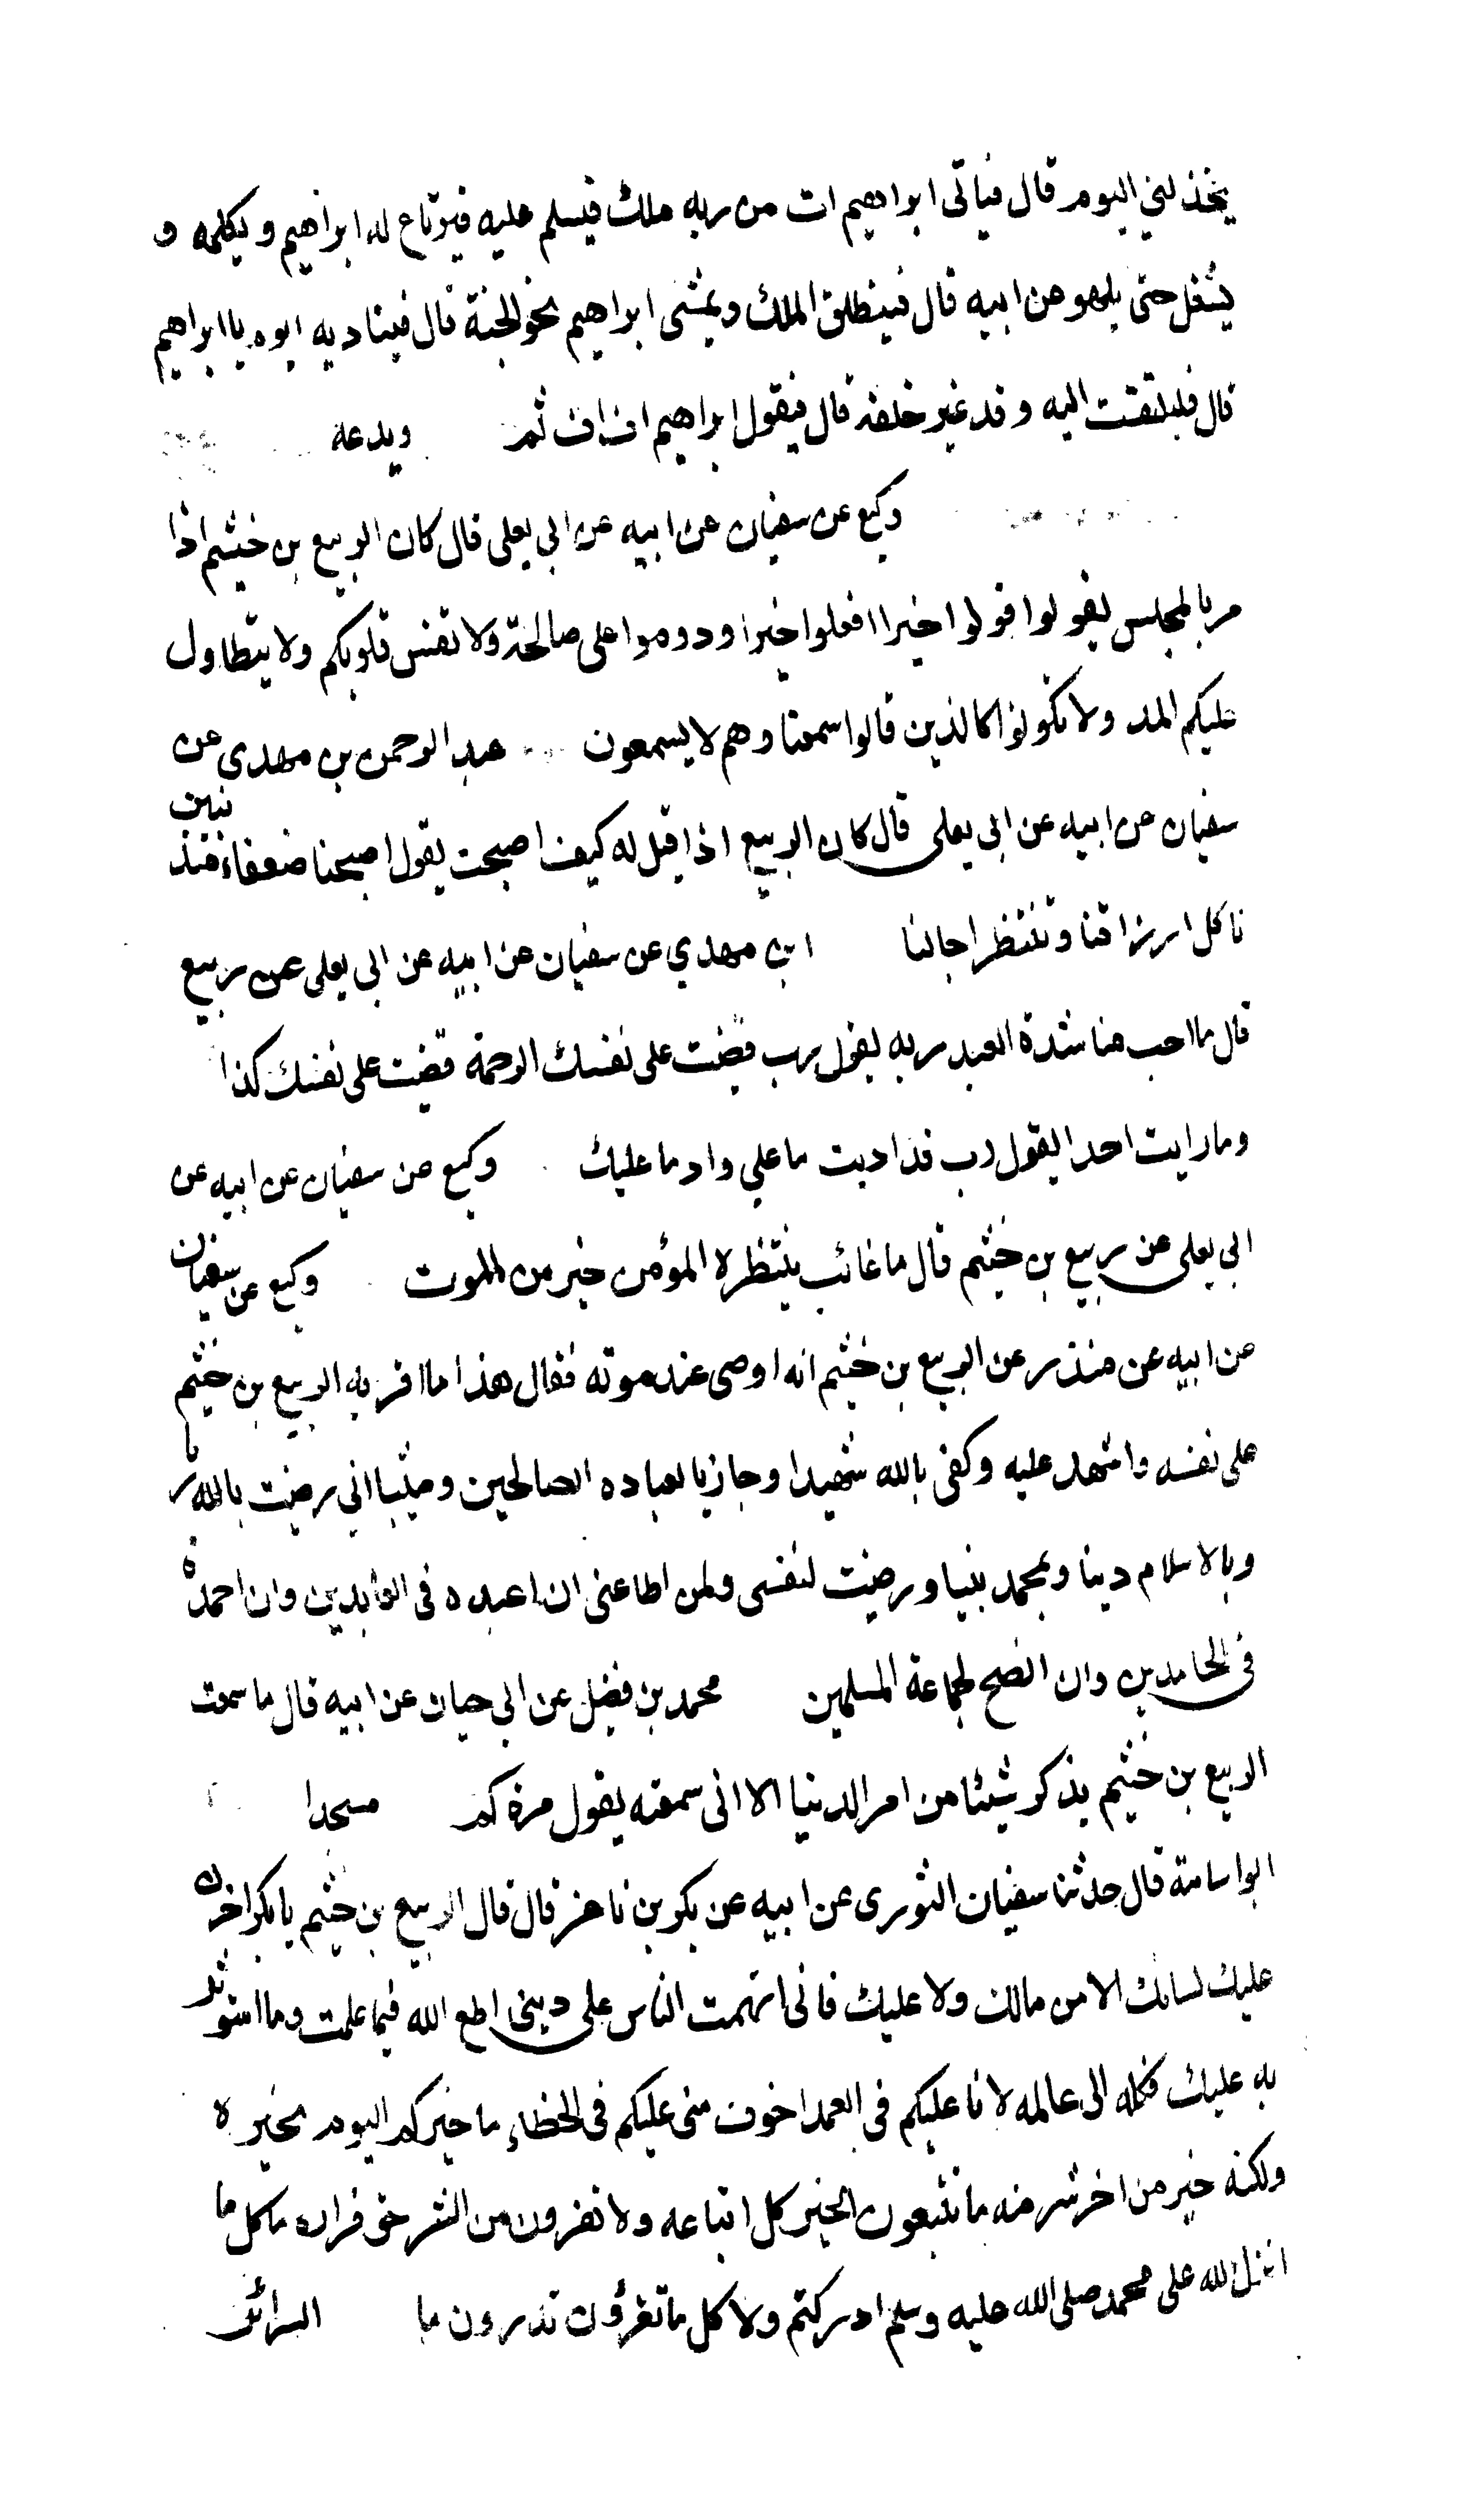 يخذلني اليوم قال فياتى ابراهيم ات من ربه ملك فيسلم عليه فيرتاع له ابراهيم ويكلمه و
يشغل حتى يلهو عن ابيه قال فينطلق الملك ويمشى ابراهيم نحو الجنة قال فيناديه ابوه يا ابراهيم
قال فيلتفت اليه وقد غير خلقه قال فيقول ابراهيم اف اف ثم ويدعه
وكيع عن سفيان عن ابيه عن ابي يعلى قال كان الربيع بن خثيم اذا
مر بالمجلس يقولوا قولوا خيرا افعلوا خيرا ودوموا على صالحة ولا تقس قلوبكم ولا يتطاول
عليكم المد ولا تكونوا كالذين قالوا سمعنا وهم لا يسمعون عبد الرحمن بن مهدي عن
سفيان عن ابيه عن ابي يعلى قال كان الربيع اذا قيل له كيف اصبحت يقول اصبحنا ضعفاء مذنبين
ناكل ارزاقنا وننتظر اجالنا ابن مهدي عن سفيان عن ابيه عن ابي يعلى عن ربيع
قال ما احب مناشدة العبد ربه يقول رب قضيت على نفسك الرحمة قضيت على نفسك كذا
وما رايت احدا يقول رب قد اديت ما علي واد ما عليك وكيع عن سفيان عن ابيه عن
ابي يعلى عن ربيع بن خثيم قال ما غائب ينتظره المؤمن خير من الموت وكيع عن سفيان
عن ابيه عن منذر عن الربيع بن خثيم انه اوصى عند موته فقال هذا ما اقر به الربيع بن خثيم
على نفسه واشهد عليه وكفى بالله شهيدا وجازيا لعباده الصالحين ومثيبا اني رضيت بالله ربا
وبالاسلام دينا وبمحمد نبيا ورضيت لنفسي ولمن اطاعني ان اعبده في العابدين وان احمده
في الحامدين وان انصح لجماعة المسلمين محمد بن فضيل عن ابي حيان عن ابيه قال ما سمعت
الربيع بن خثيم يذكر شيئا من امر الدنيا الا اني سمعته يقول مرة كم مسجدا
ابو اسامة قال حدثنا سفيان الثوري عن ابيه عن بكر بن ماعز قال قال الربيع بن خثيم يا بكر اخزن
عليك لسانك الا من مالك ولا عليك فاني اتهمت الناس على ديني اطع الله فيما علمت وما استوثر
به عليك فكله الى عالمه لانا عليكم في العمد اخوف مني عليكم في الخطاء ما خيركم اليوم بخيره
ولكنه خير من اخر شر منه ما تتبعون الخير كل اتباعه ولا تفرون من الشر حق فراره ما كل ما
انزل الله على محمد صلى الله عليه وسلم ادركتم ولا كل ما تقرؤن تدرون ما السرائر